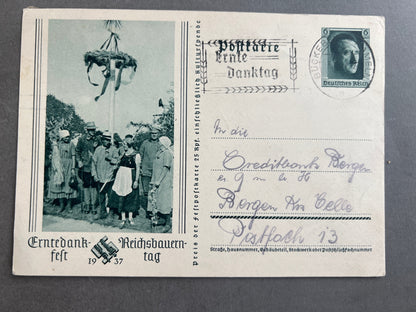 Erntedank-fest Reichsbauern-tag
1937
Preis der Festpostkarte 25 Rpf. einschließlich Kulturspende
Postkarte
Ernte
Danktag
BÜCKEB
6 6
Deutsches Reich
An die
Creditbank Bergen
e G m b H
Bergen Krs Celle
Postfach 13
Straße, Hausnummer, Gebäudeteil, Stockwerk oder Postschließfachnummer